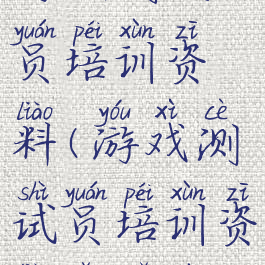 yuán péi xùn zī
员培训资
liào yóu xì cè
料(游戏测
shì yuán péi xùn zī
试员培训资